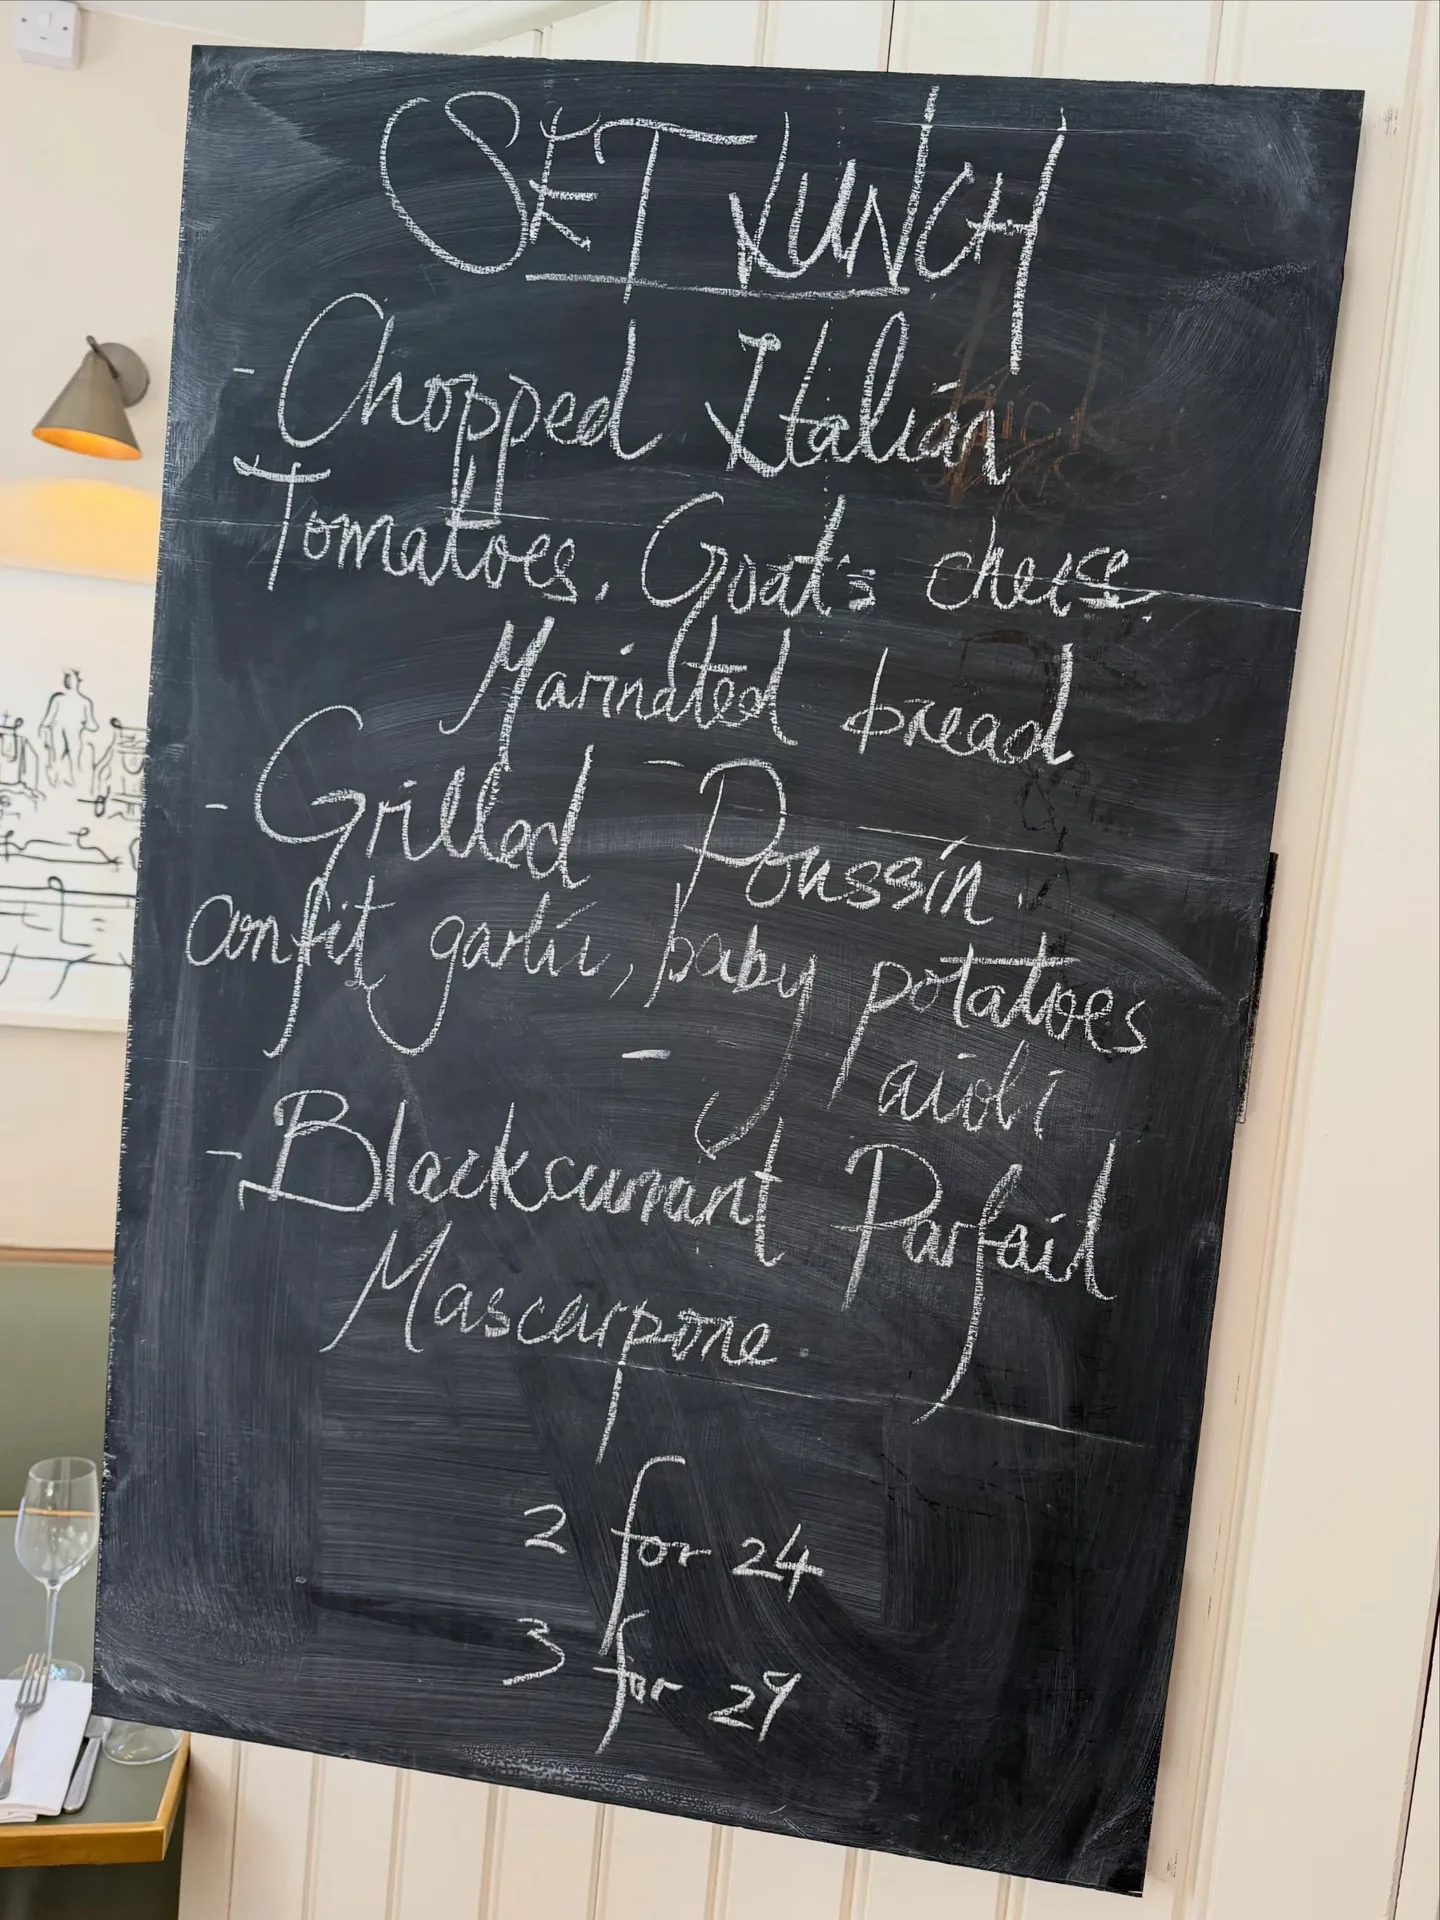 SET LUNCH
- Chopped Italian
Tomatoes, Goat's cheese
Marinated bread
-
- Grilled Poussin.
confit garlic, baby potatoes
aioli
-
- Blackcurrant Parfait
Mascarpone.
2 for 24
3 for 29